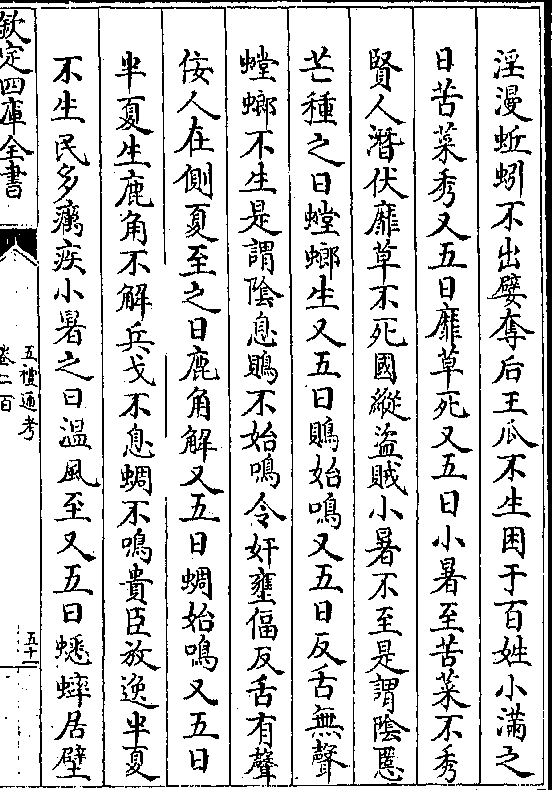 淫漫蚯蚓不出嬖奪后王瓜不生困于百姓小滿之
日苦菜秀又五日靡草死又五日小暑至苦菜不秀
賢人潛伏靡草不死國縱盜賊小暑不至是謂陰慝
芒種之日螳螂生又五日鵙始鳴又五日反舌無聲
螳螂不生是謂陰息鵙不始鳴令奸壅偪反舌有聲
佞人在側夏至之日鹿角解又五日蜩始鳴又五日
半夏生鹿角不解兵戈不息蜩不鳴貴臣放逸半夏
不生民多癘疾小暑之日溫風至又五日蟋蟀居壁
欽定四庫全書
五禮通考
卷二百
五十一